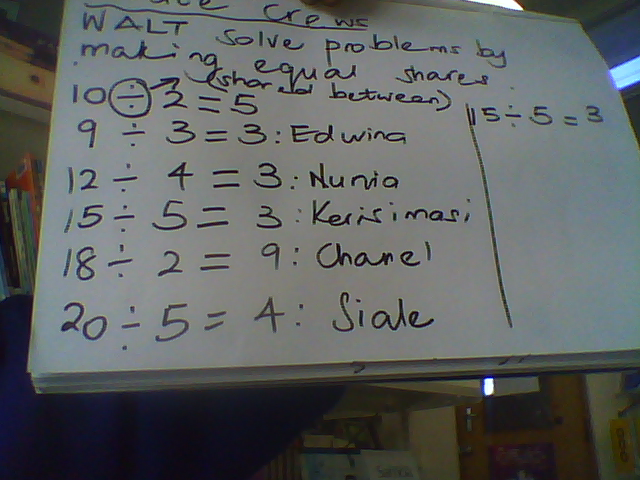 Crews
WALT solve problems by
making equal shares.
(shared between)
10 ÷ 2 = 5
9 ÷ 3 = 3: Edwina
12 ÷ 4 = 3: Nunia
15 ÷ 5 = 3: Kerisimasi
18 ÷ 2 = 9: Chanel
20 ÷ 5 = 4: Siale
15 ÷ 5 = 3